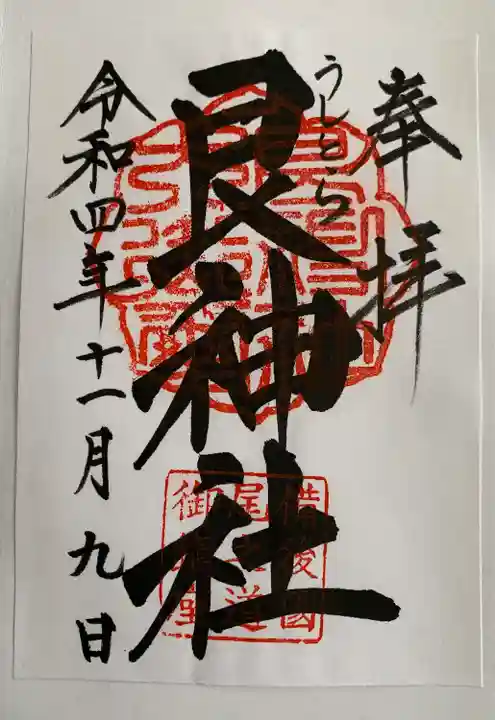 奉拝
うしとら
艮神社
令和四年十一月九日
備後國
尾之道
御